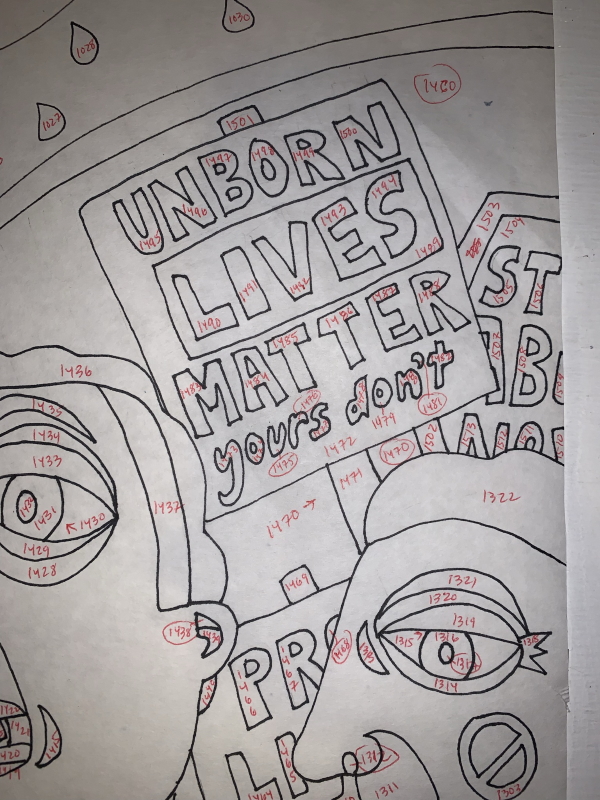 1030
1028
1027
1480
1501
UNBORN
1495 1496 1497 1498 1499 1500
LIVES
1490 1491 1492 1493 1494
1489
MATTER
1483 1484 1485 1486 1487 1488
yours don't
1475
1479
1481
1472
1470
1471
1470
1469
1503
1504
ST
1505
1507 1508
1502
1436
1435
1434
1433
1431
1430
1429
1428
1437
1438
PR
1466 1467
1468
LI
1464 1465
1322
1321
1320
1319
1315 1316
1314
1313
1311
1303
1420